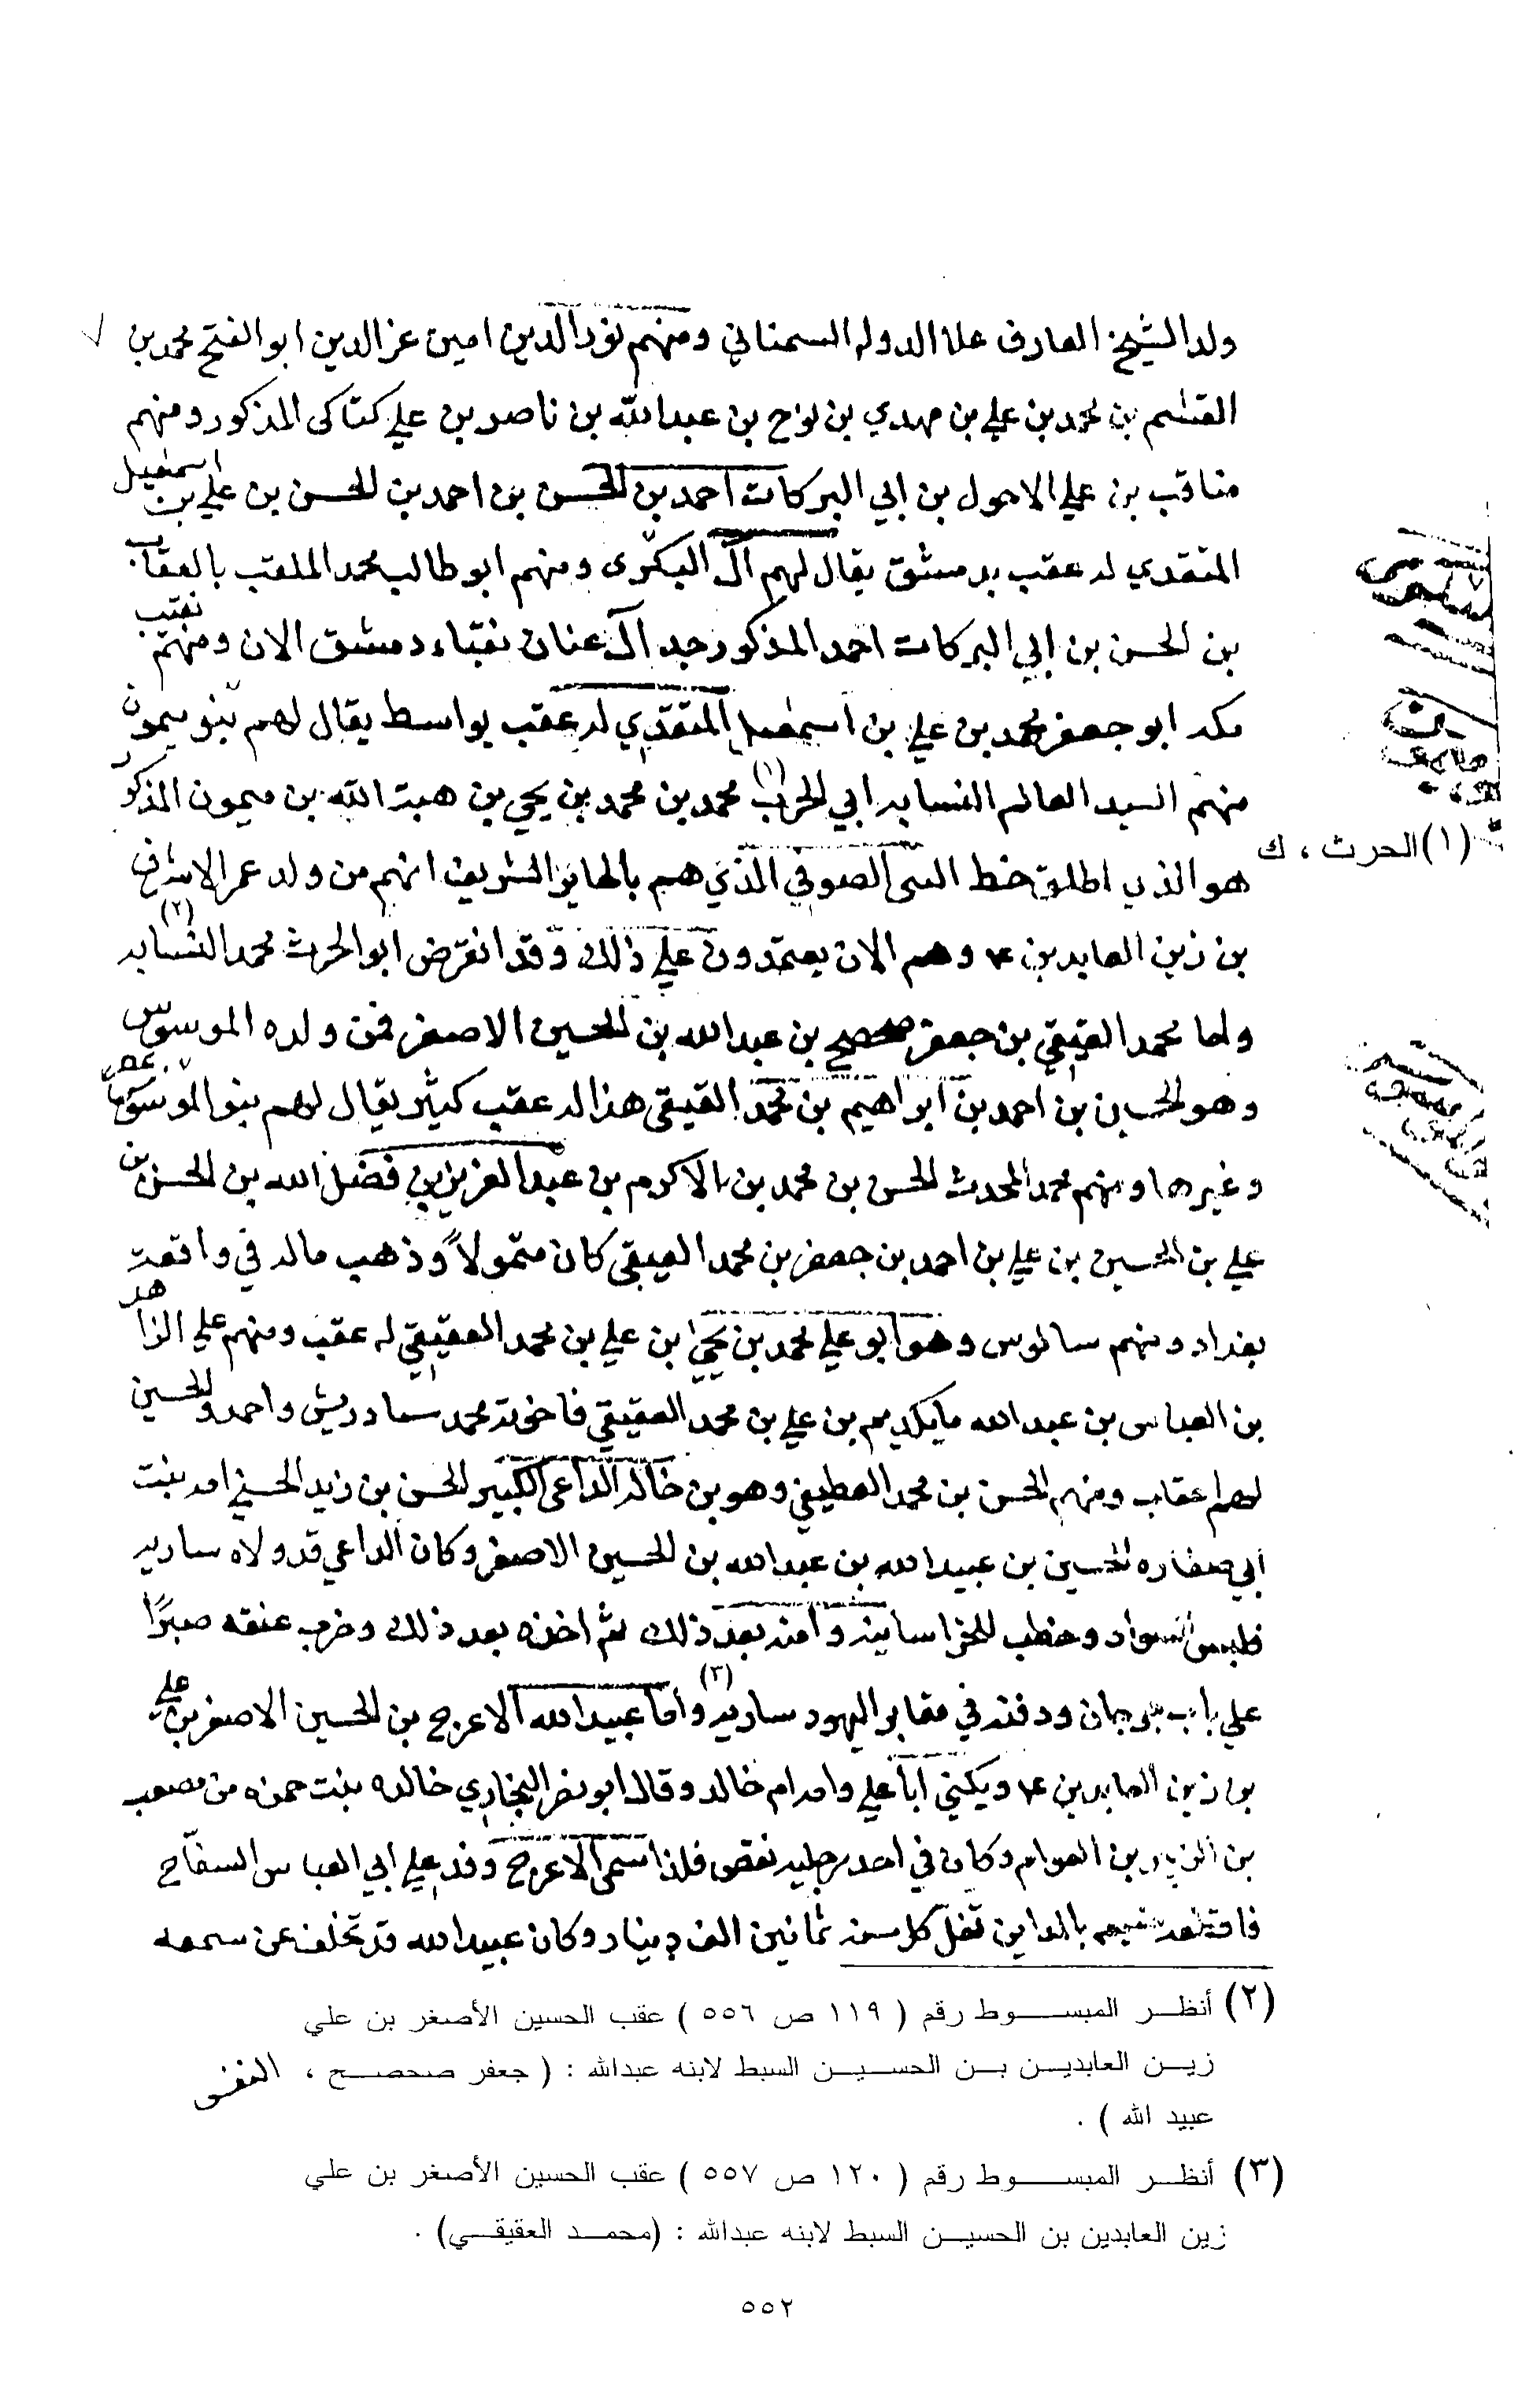 ولد الشيخ العارف علا الدوله السمناني ومنهم نورالدين امين عزالدين ابو الفتح محمد بن
القسم بن محمد بن علي بن مهدي بن نوح بن عبدالله بن ناصر بن علي كتاكى المذكور ومنهم
مناقب بن علي الاحول بن ابي البركات احمد بن الحسن بن احمد بن الحسن بن علي بن اسمعيل
المنقدي له عقب بدمشق يقال لهم آل البكرى ومنهم ابو طالب محمد الملقب بالعقاب
بن الحسن بن ابي البركات احمد المذكور جد آل عدنان نقباء دمشق الان ومنهم نقيب
مكه ابو جعفر محمد بن علي بن اسمعيل المنقدي له عقب بواسط يقال لهم بنو ميمون
منهم السيد العالم النسابه ابي الحرب (١) محمد بن محمد بن يحي بن هبة الله بن ميمون المذكور
(١) الحرث ، ك
هو الذي اطلق خط الصوفي الذي هم بالحاير الشريف انهم من ولد عمر الاشرف
بن زين العابدين ع وهم الان يعتمدون علي ذلك وقد انقرض ابو الحرث محمد النسابه (٢)
واما محمد العقيقي بن جعفر صحصح بن عبدالله بن الحسين الاصغر فمن ولده الموسوس
وهو الحسين بن احمد بن ابراهيم بن محمد العقيقي هذا له عقب كثير يقال لهم بنو الموسوس بمصر
وغيرها ومنهم محمد المحدث الحسن بن محمد بن الاكرم بن عبد العزيز بن فضل الله بن الحسن بن
علي بن الحسين بن علي بن احمد بن جعفر بن محمد العقيقي كان متمولاً وذهب ماله في واقعة
بغداد ومنهم سالوس وهو ابو علي محمد بن يحيى بن علي بن محمد العقيقي له عقب ومنهم علي الزاهد
بن العباس بن عبدالله مايكديم بن علي بن محمد العقيقي فاخوته محمد واحمد والحسين
لهم اعقاب ومنهم الحسن بن محمد العقيقي وهو بن خاله الداعي الكبير الحسن بن زيد الحسني امه بنت
أبي صفاره الحسين بن عبيدالله بن عبدالله بن الحسين الاصغر وكان الداعي قد ولاه ساريه
فلبس السواد وخطب للخراسانيه وآمنه بعد ذلك ثم اخذه بعد ذلك وضرب عنقه صبرًا
علي باب جرجان ودفنه في مقابر اليهود ساريه (٣) واما عبيدالله الاعرج بن الحسين الاصغر بن علي
بن زين العابدين ع ويكني اباعلي وامه ام خالد وقال ابو نصر البخاري خالده بنت حمزه من مصعب
بن الزبير بن العوام وكان في احد رجليه نقص فلذا سمى الاعرج وفد علي ابي العباس السفاح
فاقطعه ضيعه بالمداين تغلّ كل سنه ثمانين الف دينار وكان عبيدالله قد تخلف عن سمعه
(٢) أنظر المبسوط رقم ( ١١٩ ص ٥٥٦ ) عقب الحسين الأصغر بن علي
زين العابدين بن الحسين السبط لابنه عبدالله : ( جعفر صحصح ،
عبيد الله ) .
(٣) أنظر المبسوط رقم ( ١٢٠ ص ٥٥٧ ) عقب الحسين الأصغر بن علي
زين العابدين بن الحسين السبط لابنه عبدالله : (محمد العقيقي) .
٥٥٢